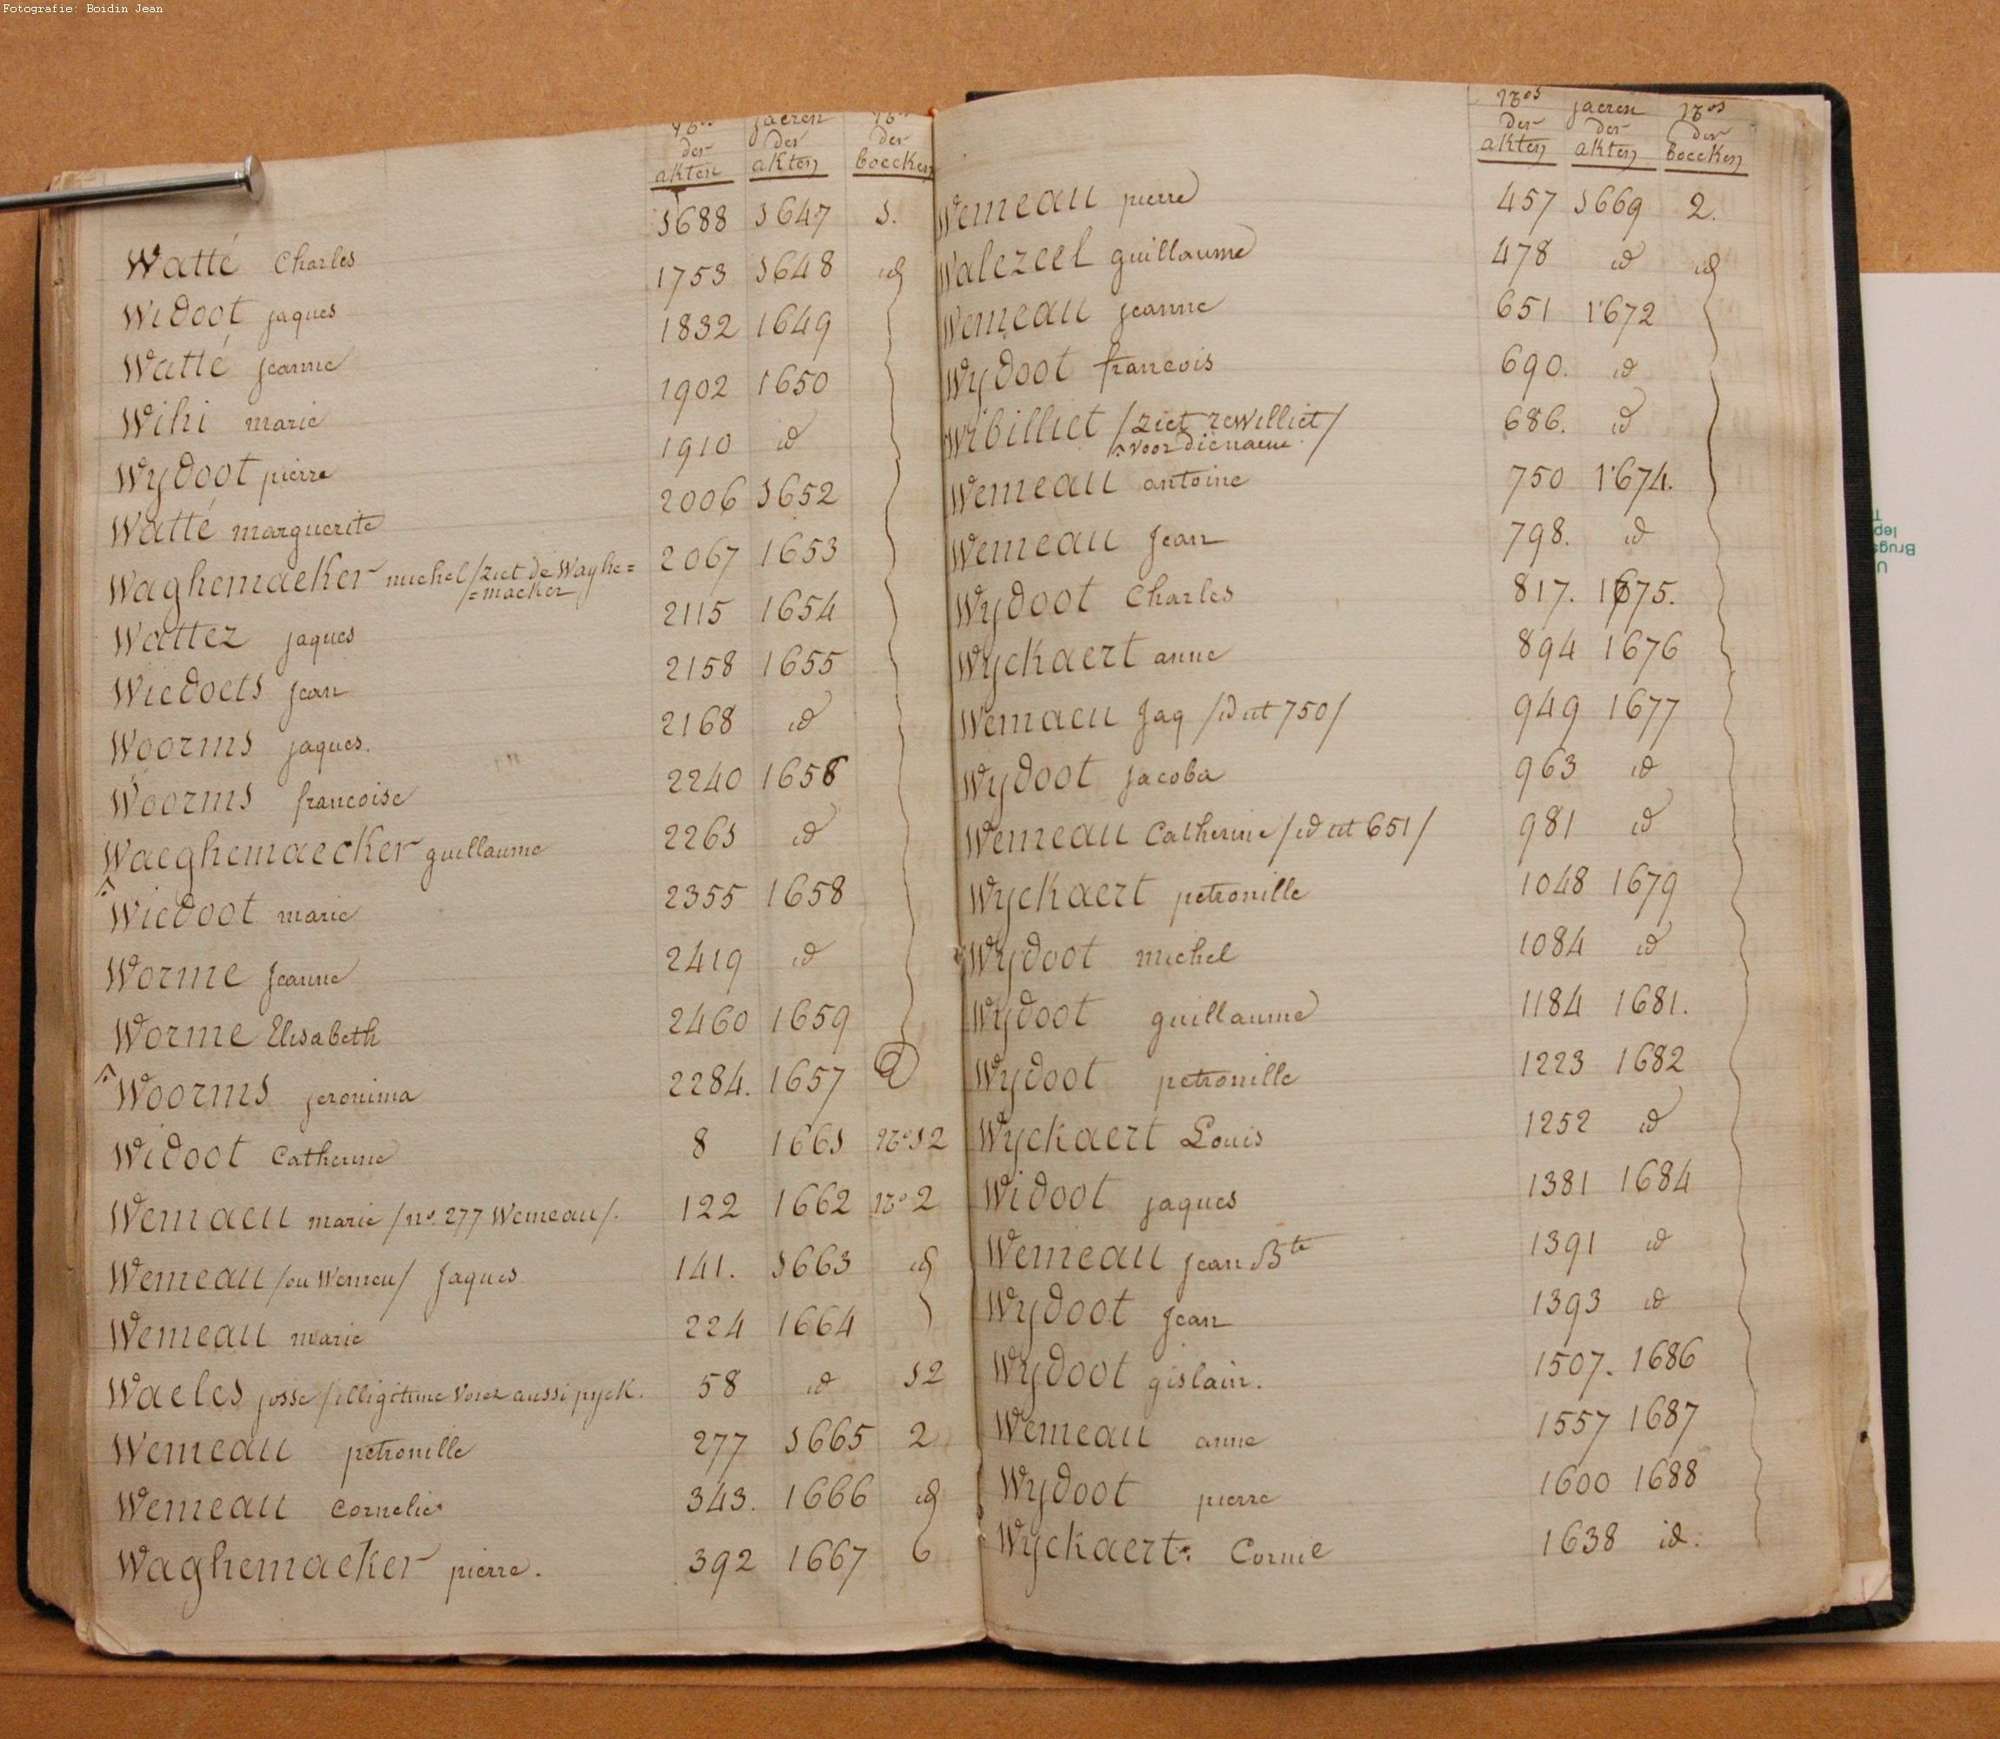 Fotografie: Boidin Jean
Nos jaeren Nos
der der der
akten akten boecken
Watté Charles 1688 1647 1.
Widoot jaques 1753 1648 id
Watté jeanne 1832 1649
Wihi marie 1902 1650
Wydoot pierre 1910 id
Watté marguerite 2006 1652
Waghemaeker michel /ziet de Waghe= 2067 1653
=maeker
Wattez jaques 2115 1654
Wiedoets jean 2158 1655
Woorms jaques. 2168 id
Woorms francoise 2240 1656
Waeghemaecker guillaume 2261 id
Wiedoot marie 2355 1658
Worme jeanne 2419 id
Worme Elisabeth 2460 1659
Woorms jeronima 2284. 1657
Widoot Catherine 8 1661 No 12
Wemaeu marie /no. 277 Wemeau/. 122 1662 No 2
Wemeau /ou Wemeu/ Jaques 141. 1663 id
Wemeau marie 224 1664
Waeles josse /illigitime Voiez aussi pyck. 58 id 12
Wemeau petronille 277 1665 2
Wemeau Cornelie 343. 1666 id
Waghemaeker pierre. 392 1667 6
Nos jaeren Nos
der der der
akten akten boecken
Wemeau pierre 457 1669 2.
Walezeel guillaume 478 id id
Wemeau jeanne 651 1672
Wydoot francois 690. id
Wibilliet /ziet zewilliet/ 686. id
voor dienaeme
Wemeau antoine 750 1674.
Wemeau jean 798. id
Wydoot Charles 817. 1675.
Wyckaert anne 894 1676
Wemaeu Jaq /id ut 750/ 949 1677
Wydoot jacoba 963 id
Wemeau Catherine /id ut 651/ 981 id
Wyckaert petronille 1048 1679
Wydoot michel 1084 id
Wydoot guillaume 1184 1681.
Wydoot petronille 1223 1682
Wyckaert Louis 1252 id
Widoot jaques 1381 1684
Wemeau jean Bte 1391 id
Wydoot jean 1393 id
Wydoot gislain. 1507. 1686
Wemeau anne 1557 1687
Wydoot pierre 1600 1688
Wyckaert. Cornie 1638 id.